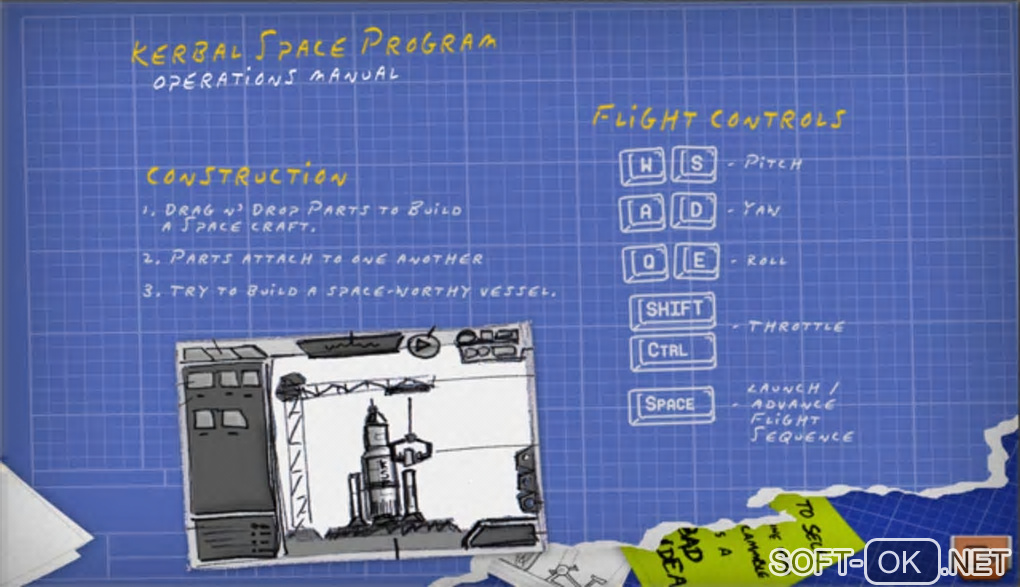 KERBAL SPACE PROGRAM
OPERATIONS MANUAL
CONSTRUCTION
1. DRAG N' DROP PARTS TO BUILD
A SPACE CRAFT.
2. PARTS ATTACH TO ONE ANOTHER
3. TRY TO BUILD A SPACE-WORTHY VESSEL.
FLIGHT CONTROLS
W S - PITCH
A D - YAW
Q E - ROLL
SHIFT
CTRL
- THROTTLE
SPACE
- LAUNCH /
ADVANCE
FLIGHT
SEQUENCE
TO SELL
IS A
BAD
IDEA
SOFT-OK.NET